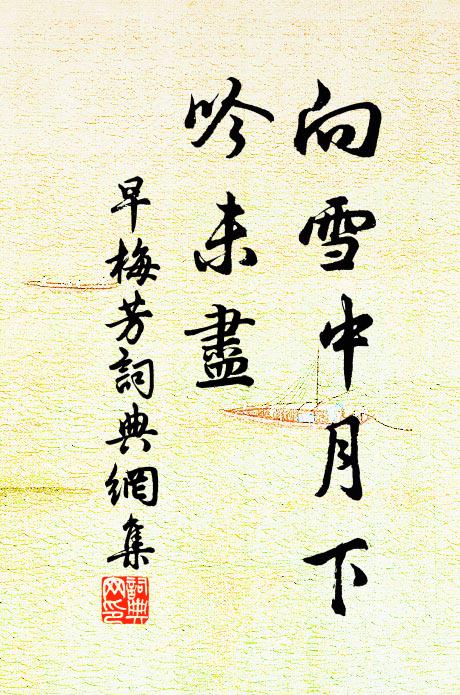 向雪中月下
吟未盡
早梅芳詞典網集
詞典網印